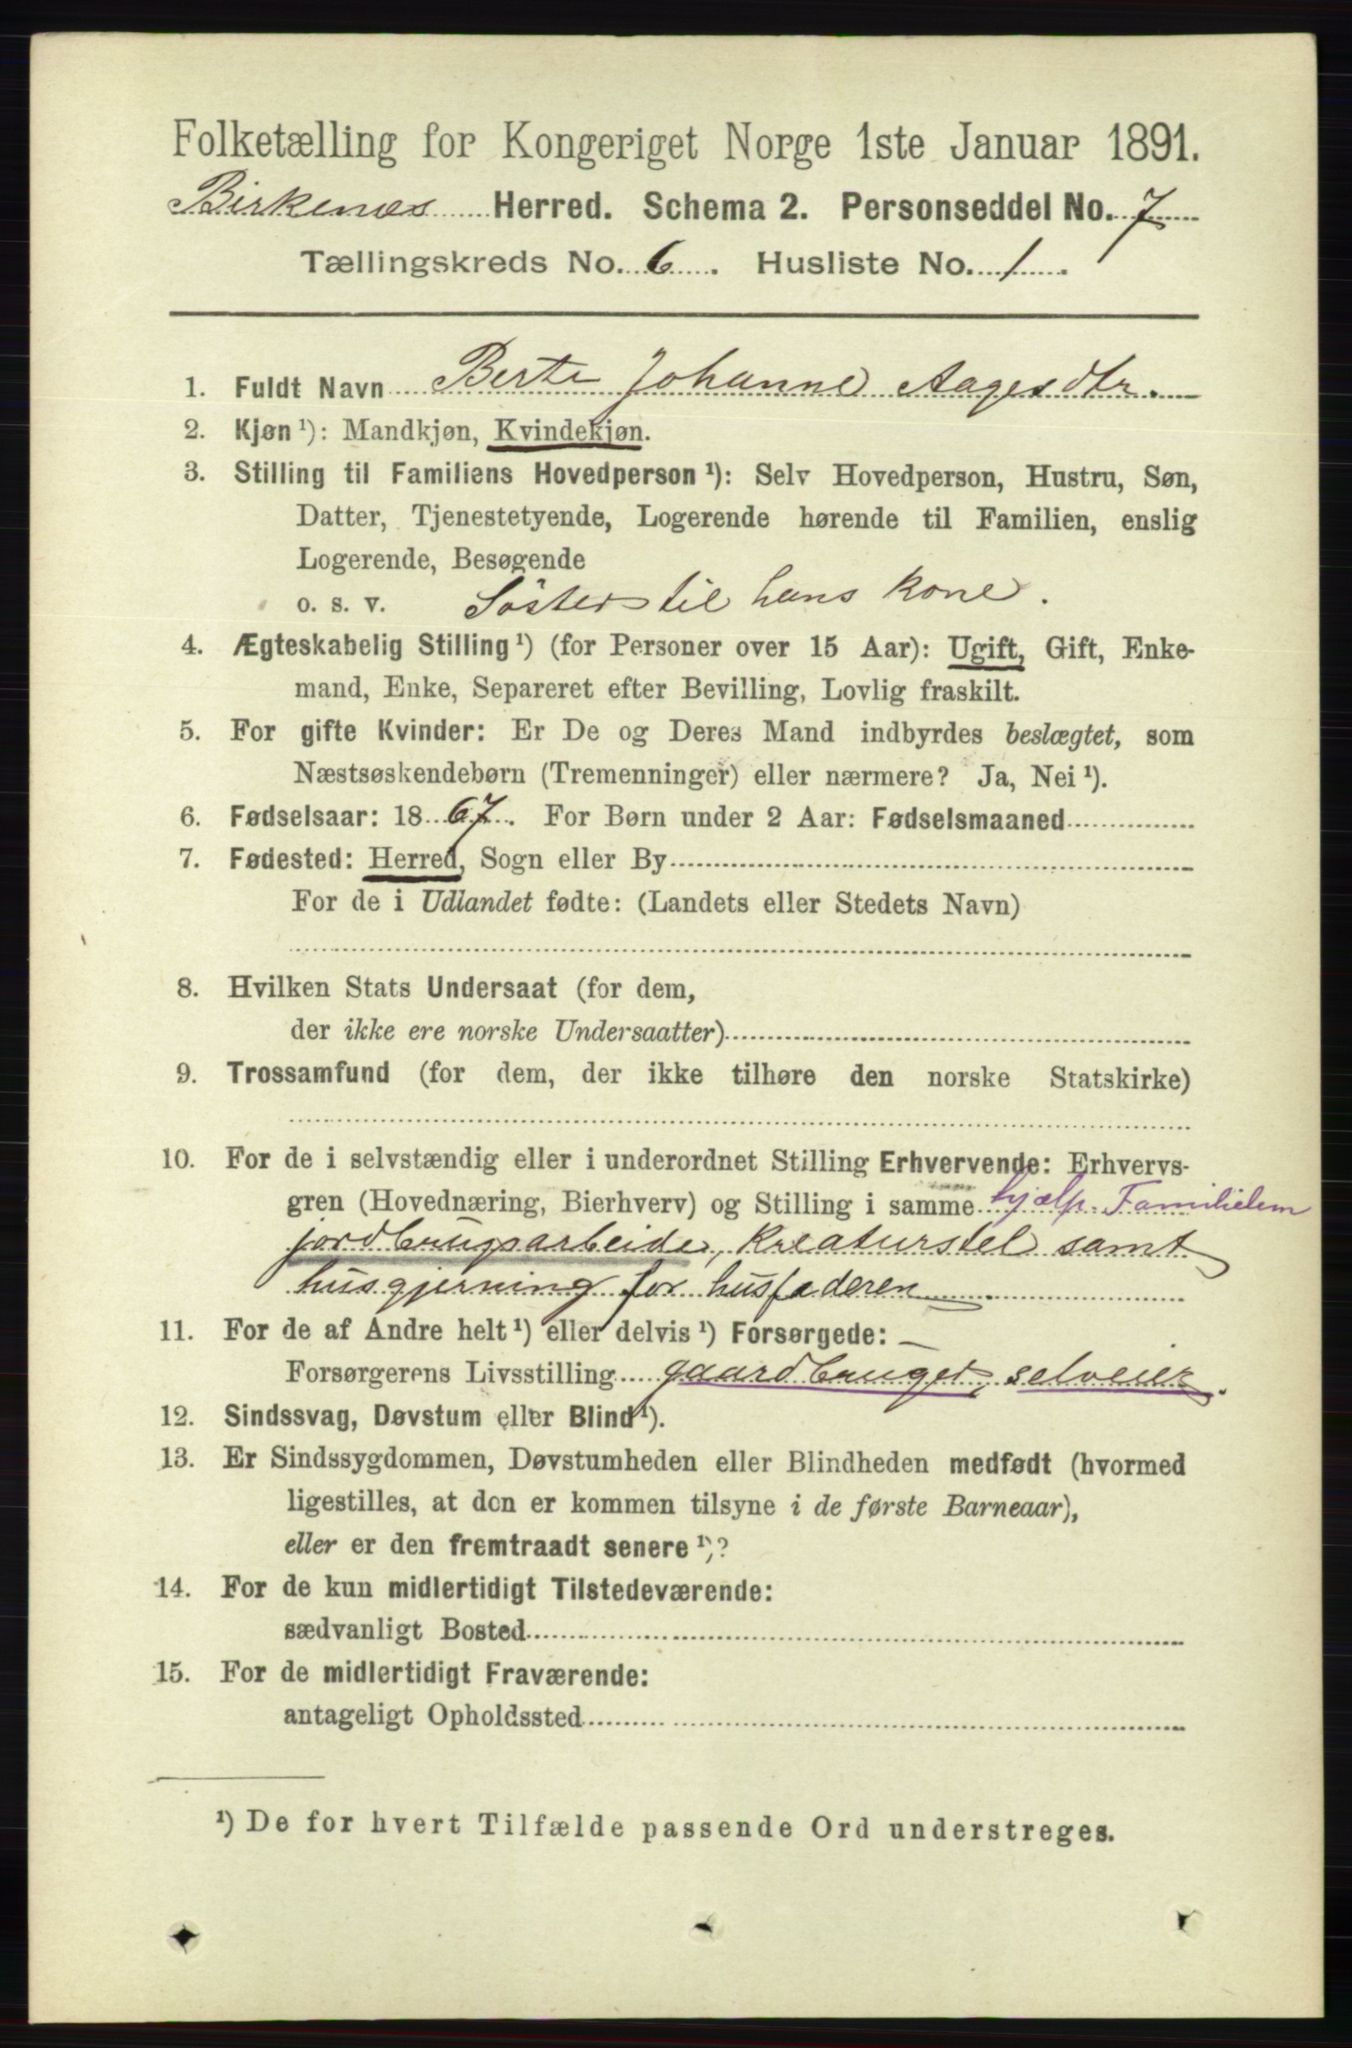 Folketælling for Kongeriget Norge 1ste Januar 1891.
Birkenæs Herred. Schema 2. Personseddel No. 7
Tællingskreds No. 6. Husliste No. 1.
1. Fuldt Navn Berte Johanne Aagesdtr.
2. Kjøn ¹): Mandkjøn, Kvindekjøn.
3. Stilling til Familiens Hovedperson ¹): Selv Hovedperson, Hustru, Søn,
Datter, Tjenestetyende, Logerende hørende til Familien, enslig
Logerende, Besøgende
o. s. v. Söster til hans kone.
4. Ægteskabelig Stilling ¹) (for Personer over 15 Aar): Ugift, Gift, Enke-
mand, Enke, Separeret efter Bevilling, Lovlig fraskilt.
5. For gifte Kvinder: Er De og Deres Mand indbyrdes beslægtet, som
Næstsøskendebørn (Tremenninger) eller nærmere? Ja, Nei ¹).
6. Fødselsaar: 1867. For Børn under 2 Aar: Fødselsmaaned
7. Fødested: Herred, Sogn eller By
For de i Udlandet fødte: (Landets eller Stedets Navn)
8. Hvilken Stats Undersaat (for dem,
der ikke ere norske Undersaatter)
9. Trossamfund (for dem, der ikke tilhøre den norske Statskirke)
10. For de i selvstændig eller i underordnet Stilling Erhvervende: Erhvervs-
gren (Hovednæring, Bierhverv) og Stilling i samme hjælp. Familielem
jordbrugsarbeide, Kreaturstel samt
husgjerning for husfaderen
11. For de af Andre helt ¹) eller delvis ¹) Forsørgede: —
Forsørgerens Livsstilling gaardbruger, selveier.
12. Sindssvag, Døvstum eller Blind ¹).
13. Er Sindssygdommen, Døvstumheden eller Blindheden medfødt (hvormed
ligestilles, at den er kommen tilsyne i de første Barneaar),
eller er den fremtraadt senere ¹)?
14. For de kun midlertidigt Tilstedeværende:
sædvanligt Bosted
15. For de midlertidigt Fraværende:
antageligt Opholdssted
¹) De for hvert Tilfælde passende Ord understreges.